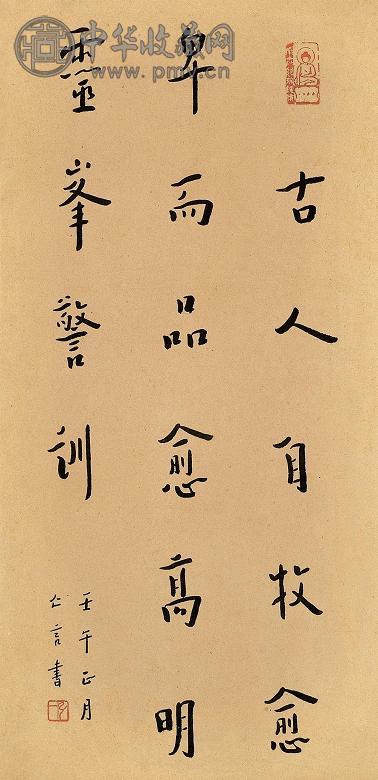 古人自牧愈
卑而品愈高明
靈峯警訓
壬午正月
亡言書
中华收藏网
www.pmyv.cn